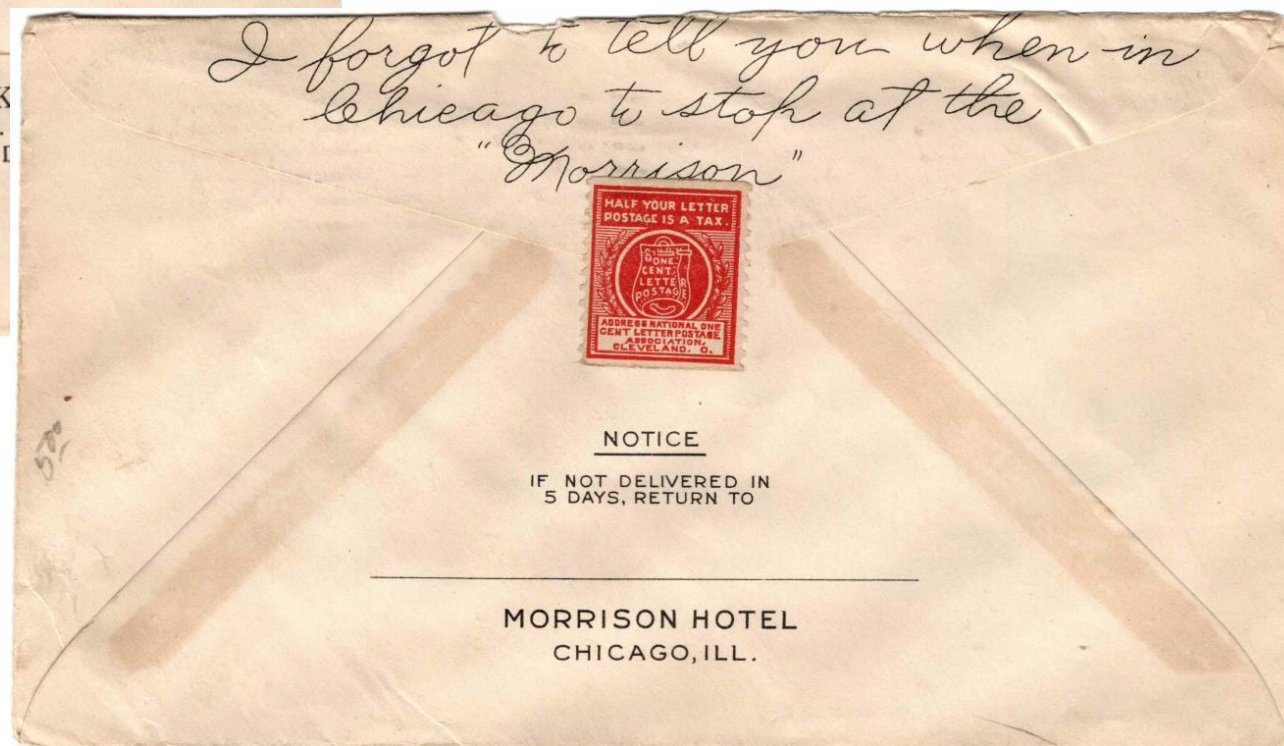 I forgot to tell you when in
Chicago to stop at the
"Morrison"
HALF YOUR LETTER
POSTAGE IS A TAX.
ONE
CENT
LETTER
POSTAGE
ADDRESS NATIONAL ONE
CENT LETTER POSTAGE
ASSOCIATION,
CLEVELAND, O.
NOTICE
IF NOT DELIVERED IN
5 DAYS, RETURN TO
MORRISON HOTEL
CHICAGO, ILL.